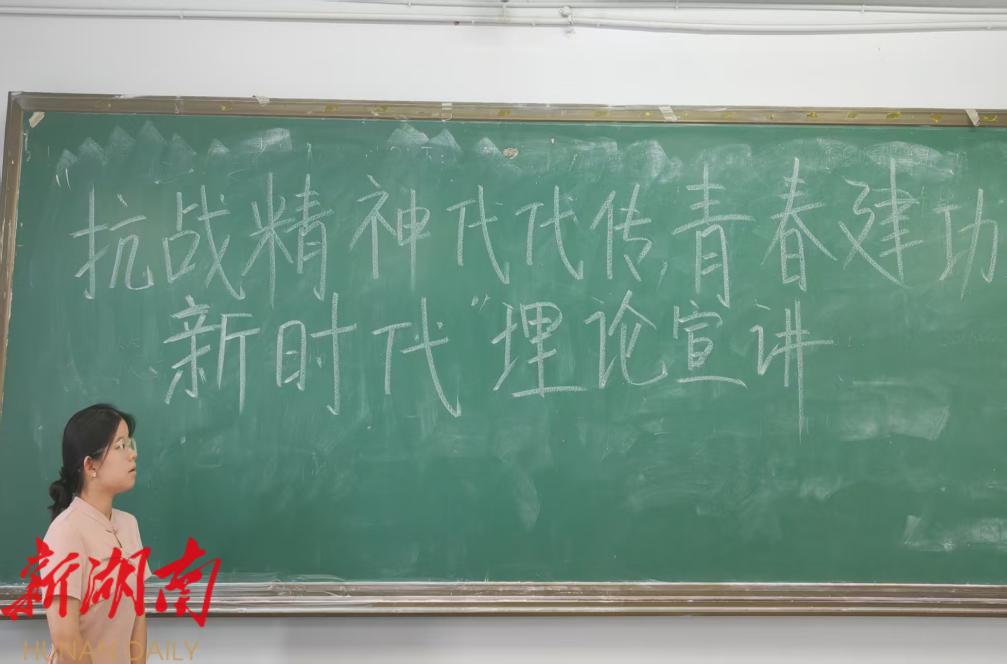 抗战精神代代传,青春建功
新时代”理论宣讲
新湖南
HUNAN DAILY